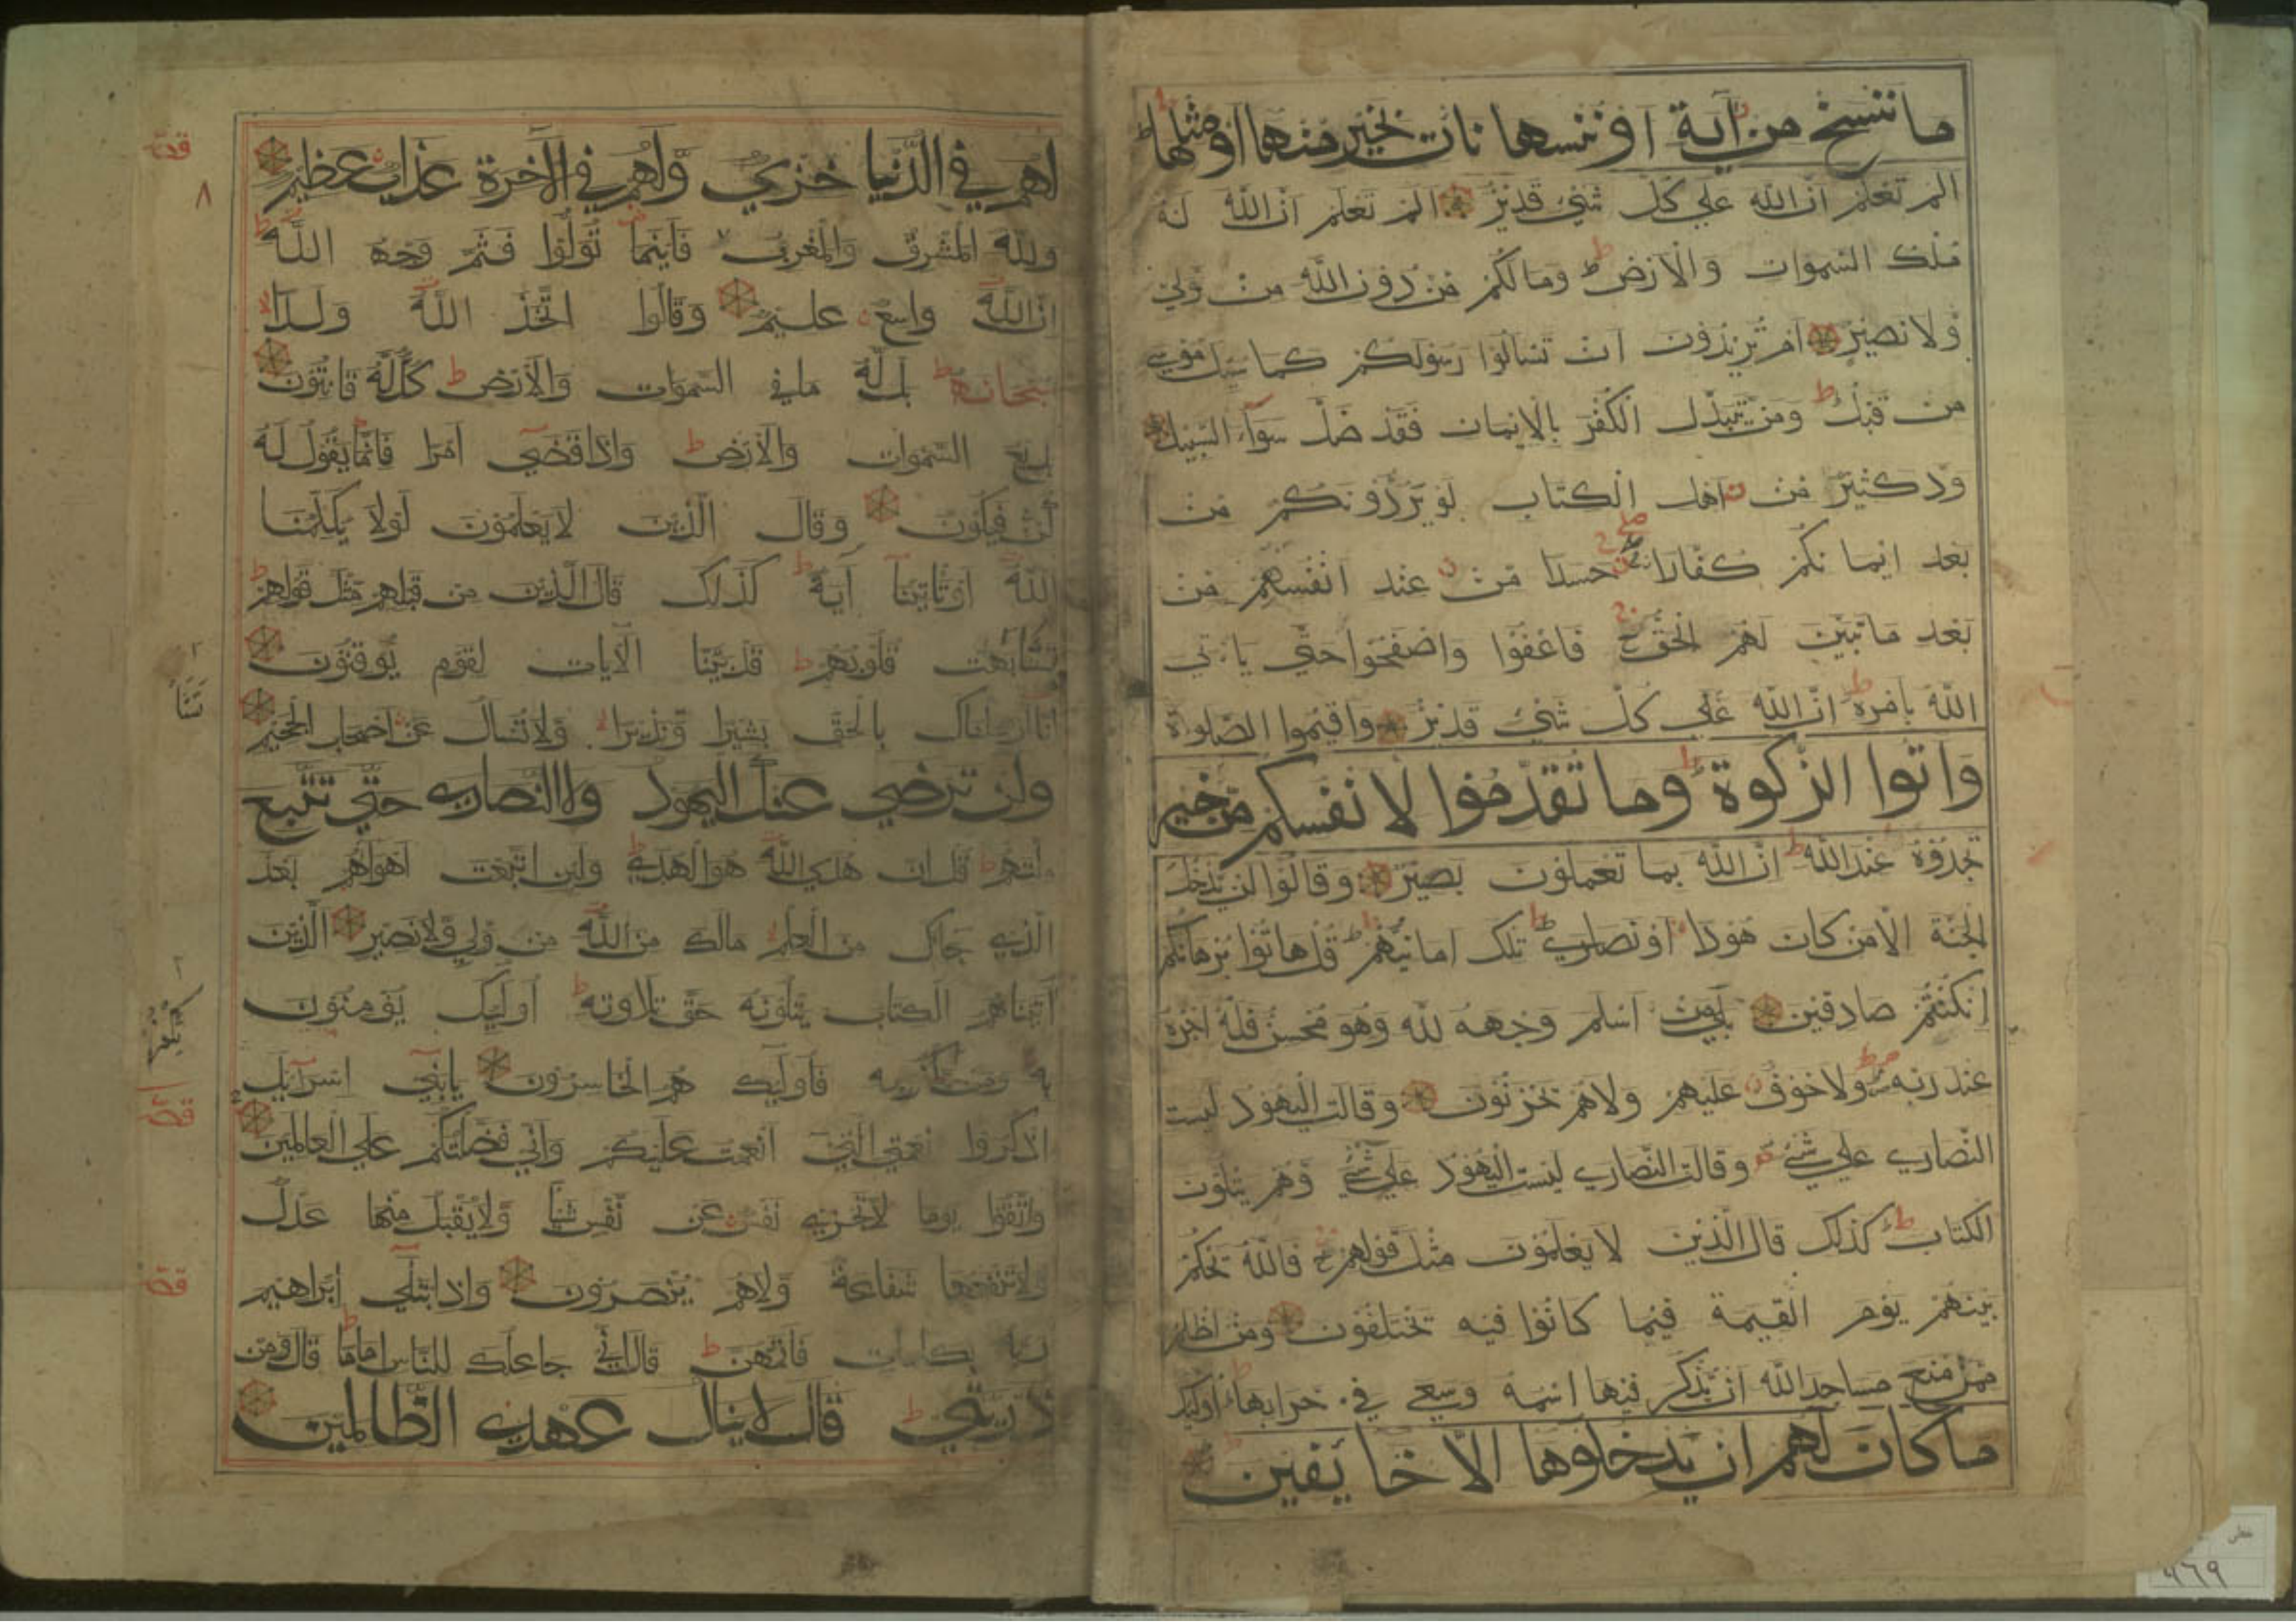 ما ننسخ من آية أو ننسها نات بخير منها أو مثلها ط
الم تعلم ان الله علي كل شيء قدير الم تعلم ان الله له
ملك السموات والارض ط وما لكم من دون الله من ولي
ولا نصير ام تريدون ان تسالوا رسولكم كما سيل موسي
من قبل ط ومن يتبدل الكفر بالايمان فقد ضل سوآء السبيل
ود كثير من اهل الكتاب لو يردونكم من
بعد ايمانكم كفارا حسدا من عند انفسهم من
بعد ما تبين لهم الحق ج فاعفوا واصفحوا حتي ياتي
الله بامره ط ان الله علي كل شيء قدير واقيموا الصلوة
واتوا الزكوة ط وما تقدموا لانفسكم من خير
تجدوه عند الله ط ان الله بما تعملون بصير وقالوا لن يدخل
الجنة الا من كان هودا او نصاري ط تلك امانيهم ط قل هاتوا برهانكم
ان كنتم صادقين بلي من اسلم وجهه لله وهو محسن فله اجره
عند ربه ولا خوف عليهم ولا هم يحزنون وقالت اليهود ليست
النصاري علي شيء وقالت النصاري ليست اليهود علي شيء وهم يتلون
الكتاب ط كذلك قال الذين لا يعلمون مثل قولهم ج فالله يحكم
بينهم يوم القيمة فيما كانوا فيه يختلفون ومن اظلم
ممن منع مساجد الله ان يذكر فيها اسمه وسعي في خرابها ط اوليك
ما كان لهم ان يدخلوها الا خايفين
لهم في الدنيا خزي ولهم في الآخرة عذاب عظيم
ولله المشرق والمغرب فاينما تولوا فثم وجه الله ط
ان الله واسع عليم وقالوا اتخذ الله ولدا
سبحانه ط بل له ما في السموات والارض ط كل له قانتون
بديع السموات والارض ط واذا قضي امرا فانما يقول له
كن فيكون وقال الذين لا يعلمون لولا يكلمنا
الله او تاتينا آية ط كذلك قال الذين من قبلهم مثل قولهم ط
تشابهت قلوبهم ط قد بينا الآيات لقوم يوقنون
انا ارسلناك بالحق بشيرا ونذيرا ولا تسال عن اصحاب الجحيم
ولن ترضي عنك اليهود ولا النصاري حتي تتبع
ملتهم ط قل ان هدي الله هو الهدي ط ولين اتبعت اهواهم بعد
الذي جاك من العلم مالك من الله من ولي ولا نصير الذين
آتيناهم الكتاب يتلونه حق تلاوته ط اوليك يومنون
به ومن يكفر به فاوليك هم الخاسرون يابني اسرآيل
اذكروا نعمتي التي انعمت عليكم واني فضلتكم علي العالمين
واتقوا يوما لا تجزي نفس عن نفس شيا ولا يقبل منها عدل
ولا تنفعها شفاعة ولا هم ينصرون واذ ابتلي ابراهيم
ربه بكلمات فاتمهن ط قال اني جاعلك للناس اماما ط قال ومن
ذريتي ط قال لا ينال عهدي الظالمين
٨